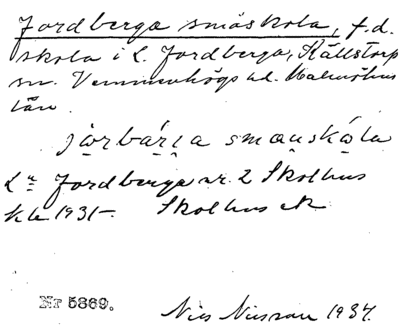 Jordberga småskola, f.d.
skola i L. Jordberga, Källstorp
sn. Vemmenhögs hd. Malmöhus
län.
L:a Jordberga nr. 2 Skolhus
kb 1931-. Skolhus ek
Nr 5869.
Nils Nilsson 1937.